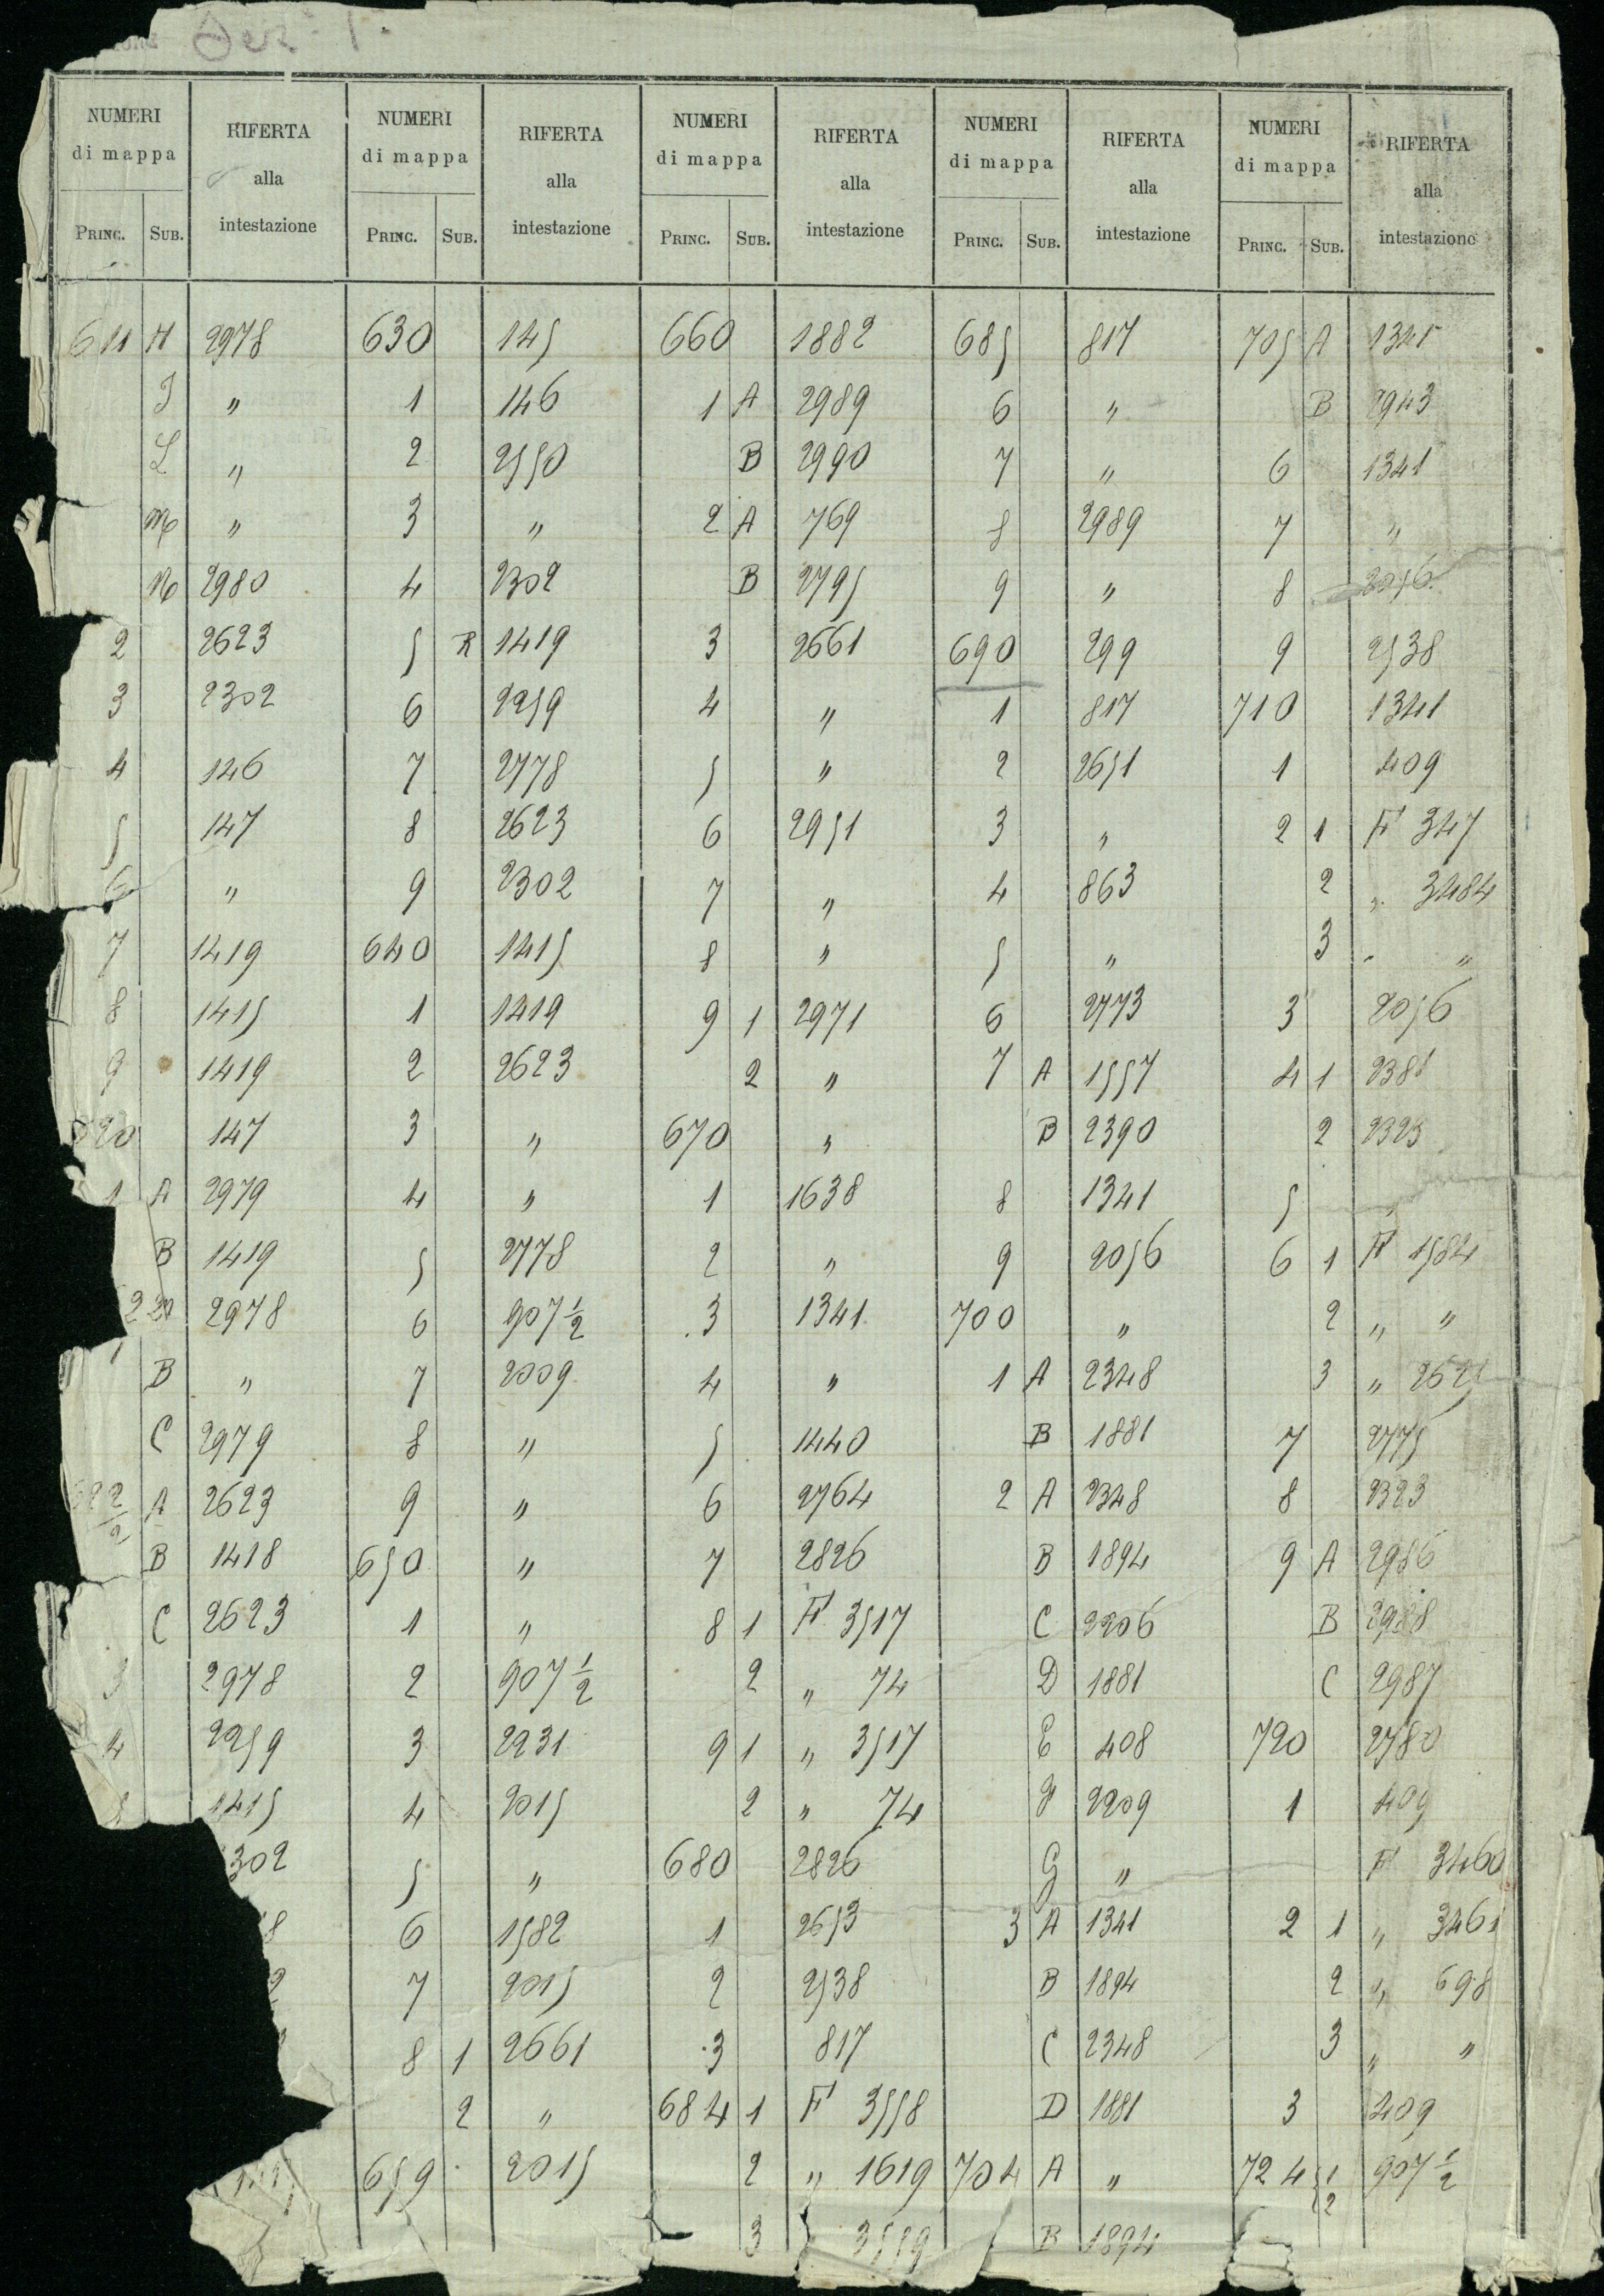 Sez. 1.
NUMERI di mappa RIFERTA alla intestazione NUMERI di mappa RIFERTA alla intestazione NUMERI di mappa RIFERTA alla intestazione NUMERI di mappa RIFERTA alla intestazione NUMERI di mappa RIFERTA alla intestazione
PRINC. SUB. PRINC. SUB. PRINC. SUB. PRINC. SUB. PRINC. SUB.
611 H 2978 630 145 660 1882 685 817 705 A 1341
I " 1 146 1 A 2989 6 " B 2943
L " 2 2550 B 2990 7 " 6 1341
M " 3 " 2 A 769 8 2989 7 "
N 2980 4 2302 B 2795 9 " 8 2056
2 2623 5 R 1419 3 2661 690 299 9 2538
3 2302 6 2259 4 " 1 817 710 1341
4 146 7 2778 5 " 2 2651 1 409
5 147 8 2623 6 2951 3 " 2 1 F 347
6 " 9 2302 7 " 4 863 2 " 3484
7 1419 640 1415 8 " 5 " 3 " "
8 1415 1 1419 9 1 2971 6 2773 3 2056
9 1419 2 2623 2 " 7 A 1557 4 1 2381
620 147 3 " 670 " B 2390 2 2323
1 A 2979 4 " 1 1638 8 1341 5 "
B 1419 5 2778 2 " 9 2056 6 1 F 1584
2 2978 6 907 1/2 3 1341 700 " 2 " "
B " 7 2009 4 " 1 A 2348 3 "
C 2979 8 " 5 1440 B 1881 7 2775
622/2 A 2623 9 " 6 2764 2 A 2348 8 2323
B 1418 650 " 7 2826 B 1894 9 A 2986
C 2623 1 " 8 1 F 3517 C 2206 B 2988
3 2978 2 907 1/2 2 " 74 D 1881 C 2987
4 2259 3 2231 9 1 " 3517 E 408 720 2780
1415 4 2015 2 " 74 F 2209 1 409
302 5 " 680 2826 G " F 3460
8 6 1582 1 2653 3 A 1341 2 1 " 3461
2 7 2015 2 2538 B 1894 2 " 698
8 1 2661 3 817 C 2348 3 " "
2 " 684 1 F 3558 D 1881 3 409
659 2015 2 " 1619 704 A " 724 1/2 907 1/2
3 3559 B 1894